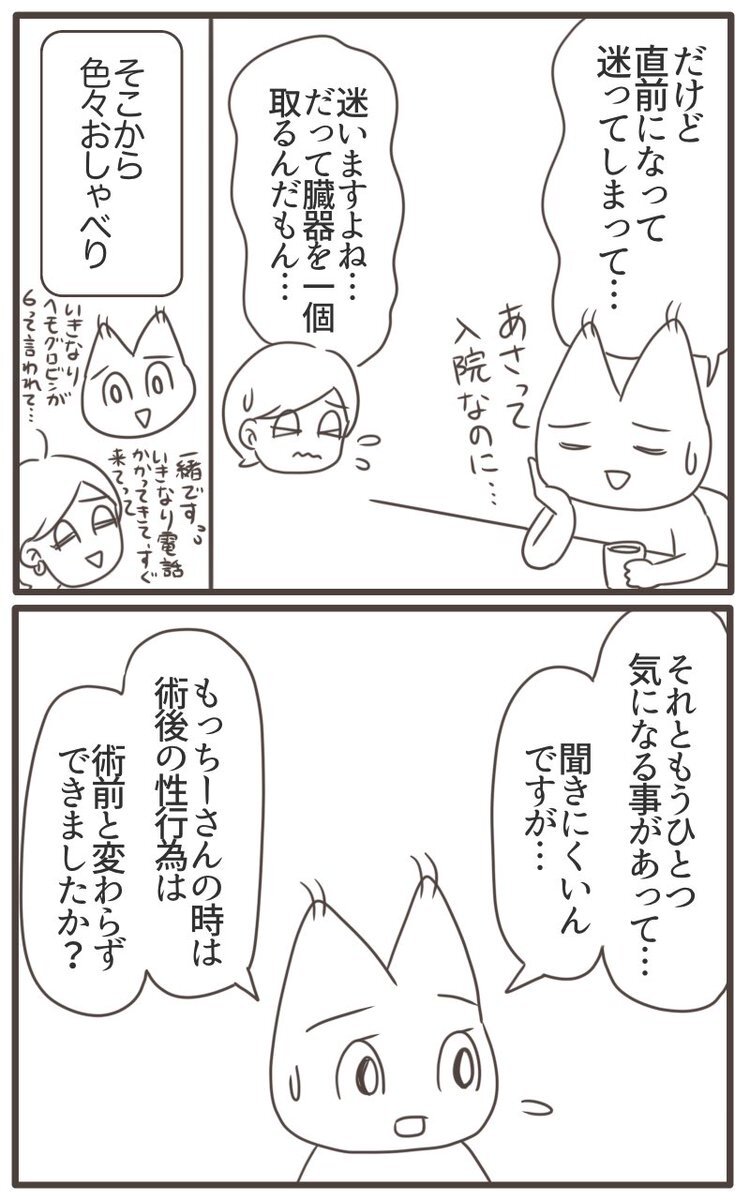 だけど
直前になって
迷ってしまって…
あさって
入院なのに…
迷いますよね…
だって臓器を一個
取るんだもん…
そこから
色々おしゃべり
いきなり
ヘモグロビンが
6って言われて…
一緒ですっ
いきなり電話
かかってきて、すぐ
来てって
それともうひとつ
気になる事があって…
聞きにくいん
ですが…
もっちーさんの時は
術後の性行為は
術前と変わらず
できましたか？